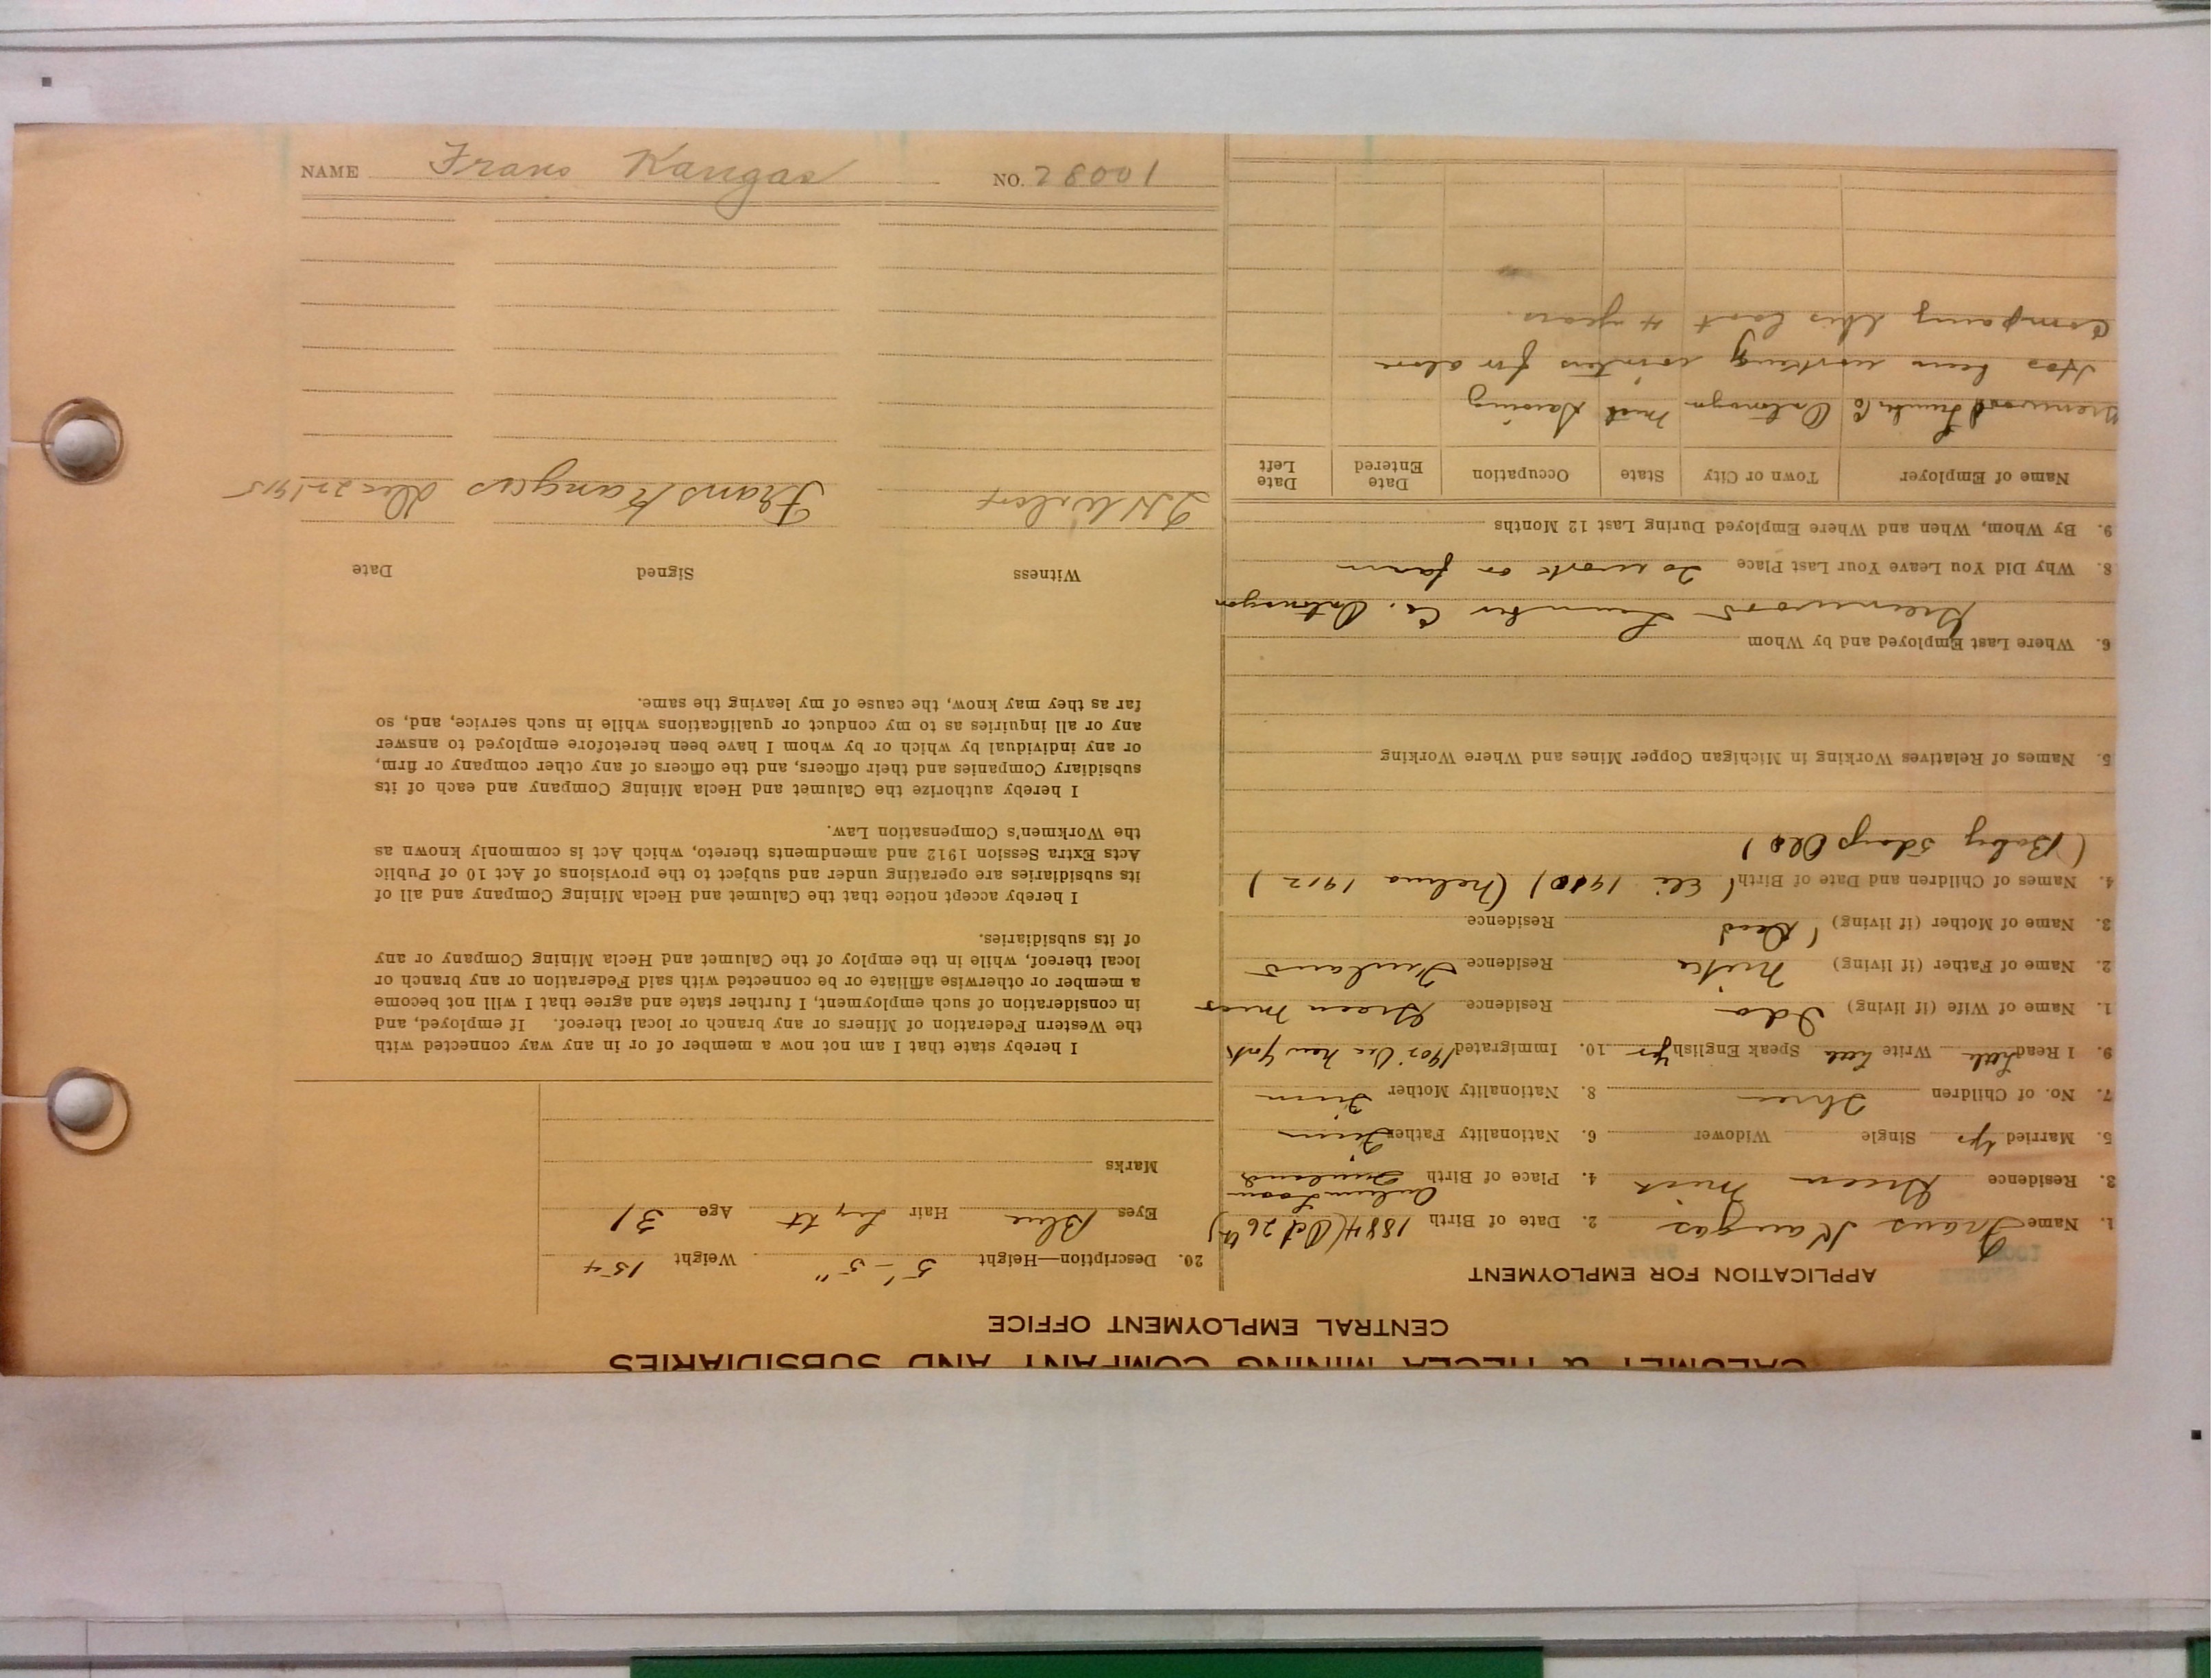 CALUMET & HECLA MINING COMPANY AND SUBSIDIARIES
CENTRAL EMPLOYMENT OFFICE
APPLICATION FOR EMPLOYMENT
1. Name Frans Kangas 2. Date of Birth 1884 (Oct 26th)
3. Residence Green Mich 4. Place of Birth Finland
5. Married Yes Single Widower 6. Nationality Father Finn
7. No. of Children Three 8. Nationality Mother Finn
9. I Read Write Speak English Yes 10. Immigrated 1902 Via New York
1. Name of Wife (if living) Ida Residence Green Mich
2. Name of Father (if living) Residence Finland
3. Name of Mother (if living) (Dead) Residence
4. Names of Children and Date of Birth (Eli 1910) (Helma 1912)
(Baby 5 days Old)
5. Names of Relatives Working in Michigan Copper Mines and Where Working
6. Where Last Employed and by Whom
Greenwood Lumber Co. Ontonagon
8. Why Did You Leave Your Last Place To work on farm
9. By Whom, When and Where Employed During Last 12 Months
Name of Employer Town or City State Occupation Date Entered Date Left
Greenwood Lumber Co Ontonagon Mich
Has been working winters for above
Company this last 4 years.
20. Description—Height 5'-5" Weight 154
Eyes Blue Hair Light Age 31
Marks
I hereby state that I am not now a member of or in any way connected with
the Western Federation of Miners or any branch or local thereof. If employed, and
in consideration of such employment, I further state and agree that I will not become
a member or otherwise affiliate or be connected with said Federation or any branch or
local thereof, while in the employ of the Calumet and Hecla Mining Company or any
of its subsidiaries.
I hereby accept notice that the Calumet and Hecla Mining Company and all of
its subsidiaries are operating under and subject to the provisions of Act 10 of Public
Acts Extra Session 1912 and amendments thereto, which Act is commonly known as
the Workmen's Compensation Law.
I hereby authorize the Calumet and Hecla Mining Company and each of its
subsidiary Companies and their officers, and the officers of any other company or firm,
or any individual by which or by whom I have been heretofore employed to answer
any or all inquiries as to my conduct or qualifications while in such service, and, so
far as they may know, the cause of my leaving the same.
Witness Signed Date
Frans Kangas Dec 22-1915
NAME Frans Kangas NO. 28001